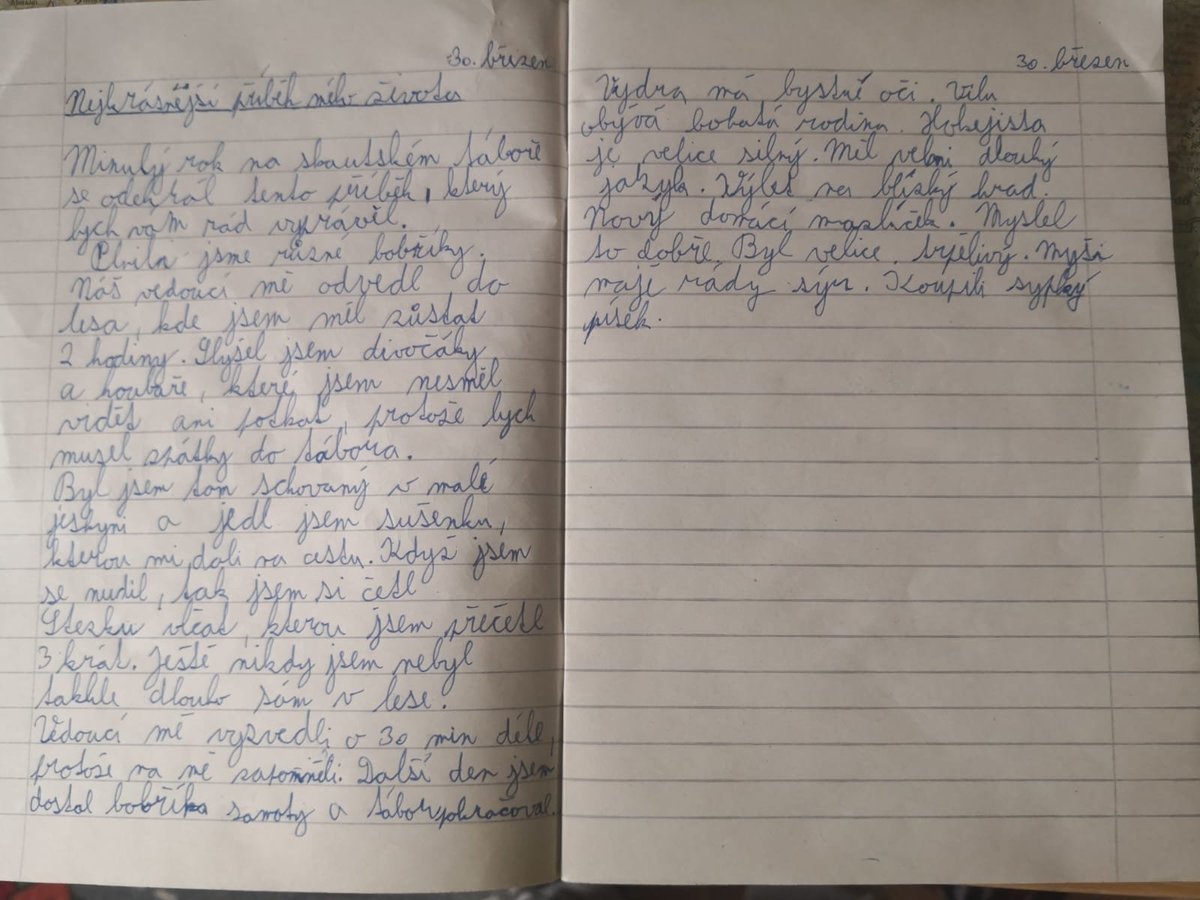 30. březen
Nejkrásnější příběh mého života
Minulý rok na skautském táboře
se odehrál tento příběh, který
bych vám rád vyprávěl.
Plnili jsme různé bobříky.
Náš vedoucí mě odvedl do
lesa, kde jsem měl zůstat
2 hodiny. Slyšel jsem divočáky
a houbaře, které jsem nesměl
vidět ani potkat, protože bych
musel zpátky do tábora.
Byl jsem tam schovaný v malé
jeskyni a jedl jsem sušenku,
kterou mi dali na cestu. Když jsem
se nudil, tak jsem si četl
Stezku vlčat, kterou jsem přečetl
3 krát. Ještě nikdy jsem nebyl
takhle dlouho sám v lese.
Vedoucí mě vyzvedli o 30 min déle,
protože na mě zapomněli. Další den jsem
dostal bobříka samoty a tábor pokračoval.
30. březen
Vydra má bystré oči. Vilu
obývá bohatá rodina. Hokejista
je velice silný. Měl velmi dlouhý
jazyk. Výlet na blízký hrad.
Nový domácí mazlíček. Myslel
to dobře. Byl velice trpělivý. Myši
maje rády sýr. Koupili sypký
písek.